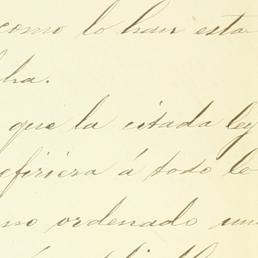 como lo han esta
ha.
que la citada ley
efiriera á todo lo
no ordenado un